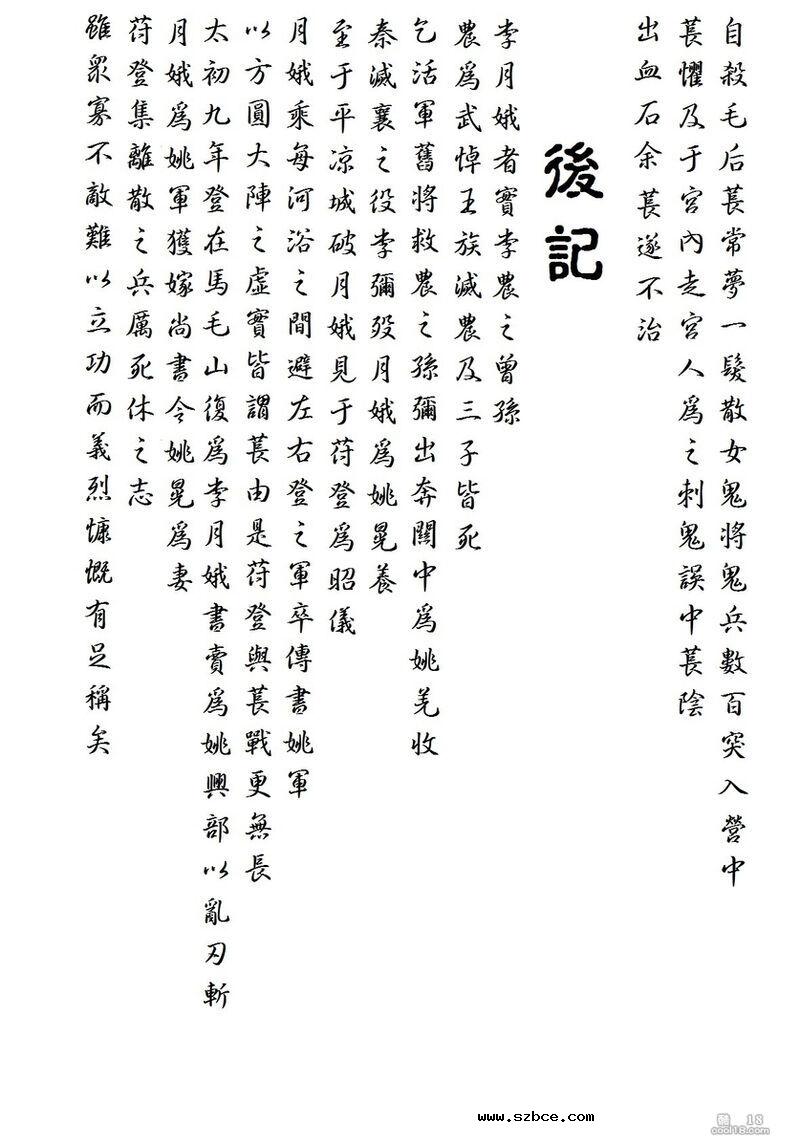 自殺毛后萇常夢一髮散女鬼將鬼兵數百突入營中
萇懼及于宮內走宮人爲之刺鬼誤中萇陰
出血石余萇遂不治
後記
李月娥者實李農之曾孫
農爲武悼王族滅農及三子皆死
乞活軍舊將救農之孫彌出奔關中爲姚羌收
秦滅襄之役李彌歿月娥爲姚晃養
至于平凉城破月娥見于苻登爲昭儀
月娥乘每河浴之間避左右登之軍卒傳書姚軍
以方圓大陣之虛實皆謂萇由是苻登與萇戰更無長
太初九年登在馬毛山復爲李月娥書賣爲姚興部以亂刃斬
月娥爲姚軍獲嫁尚書令姚晃爲妻
苻登集離散之兵厲死休之志
雖衆寡不敵難以立功而義烈慷慨有足稱矣
www.szbce.com
酷 18
cool18.com